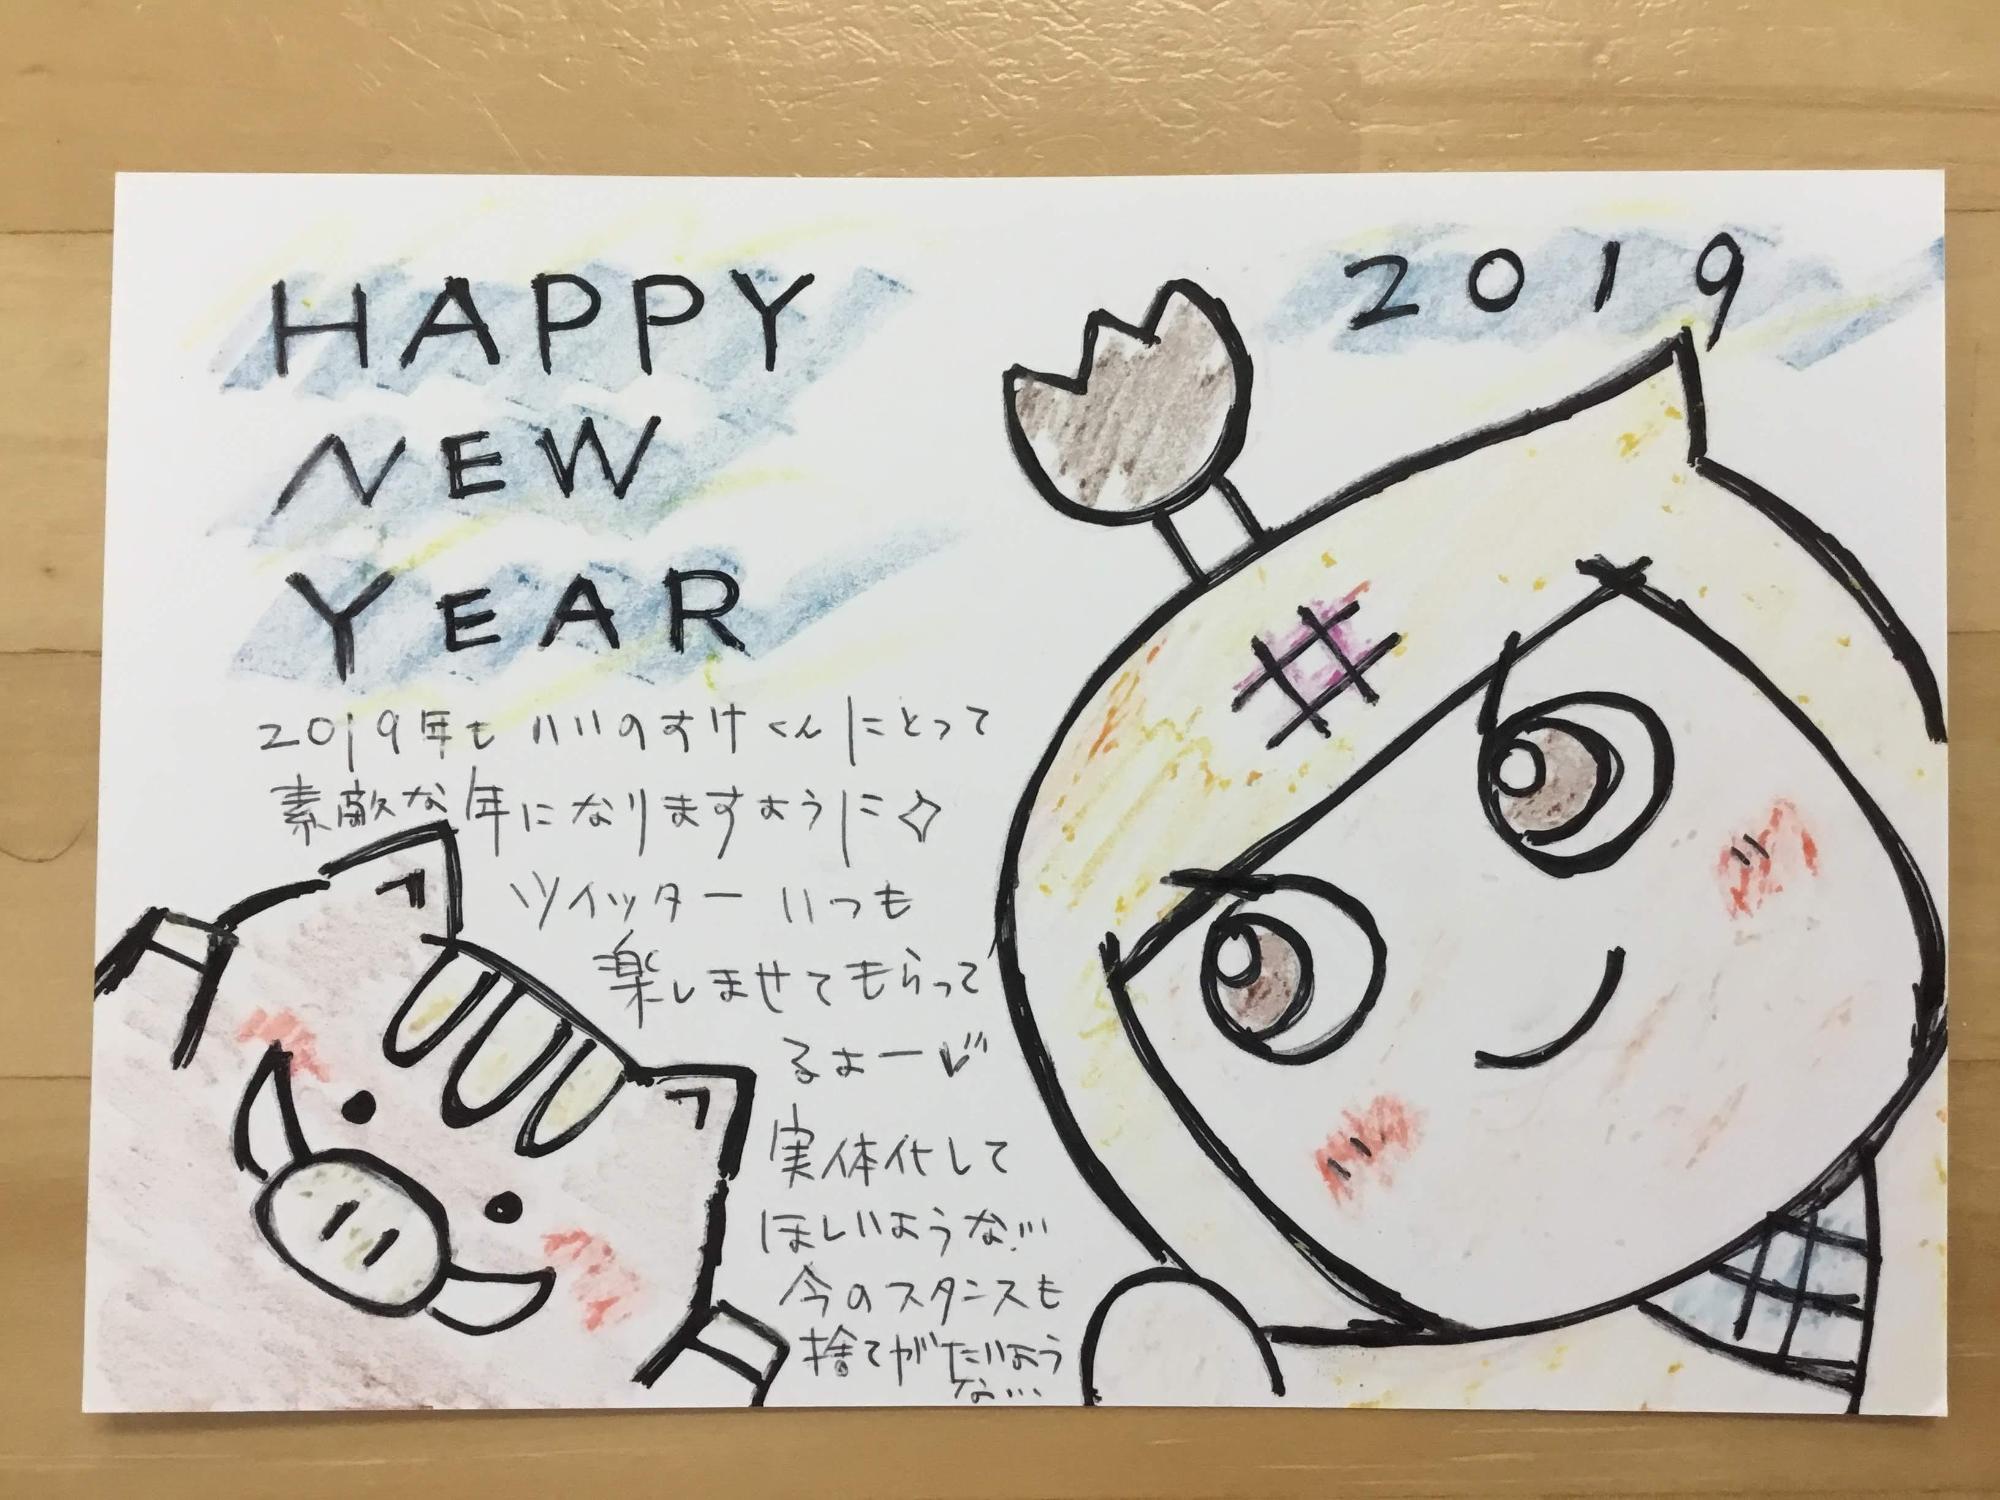 HAPPY
NEW
YEAR
2019
2019年もいいのすけくんにとって
素敵な年になりますように
ツイッターいつも
楽しませてもらって
るよー
実体化して
ほしいような…
今のスタンスも
捨てがたいよう
な…